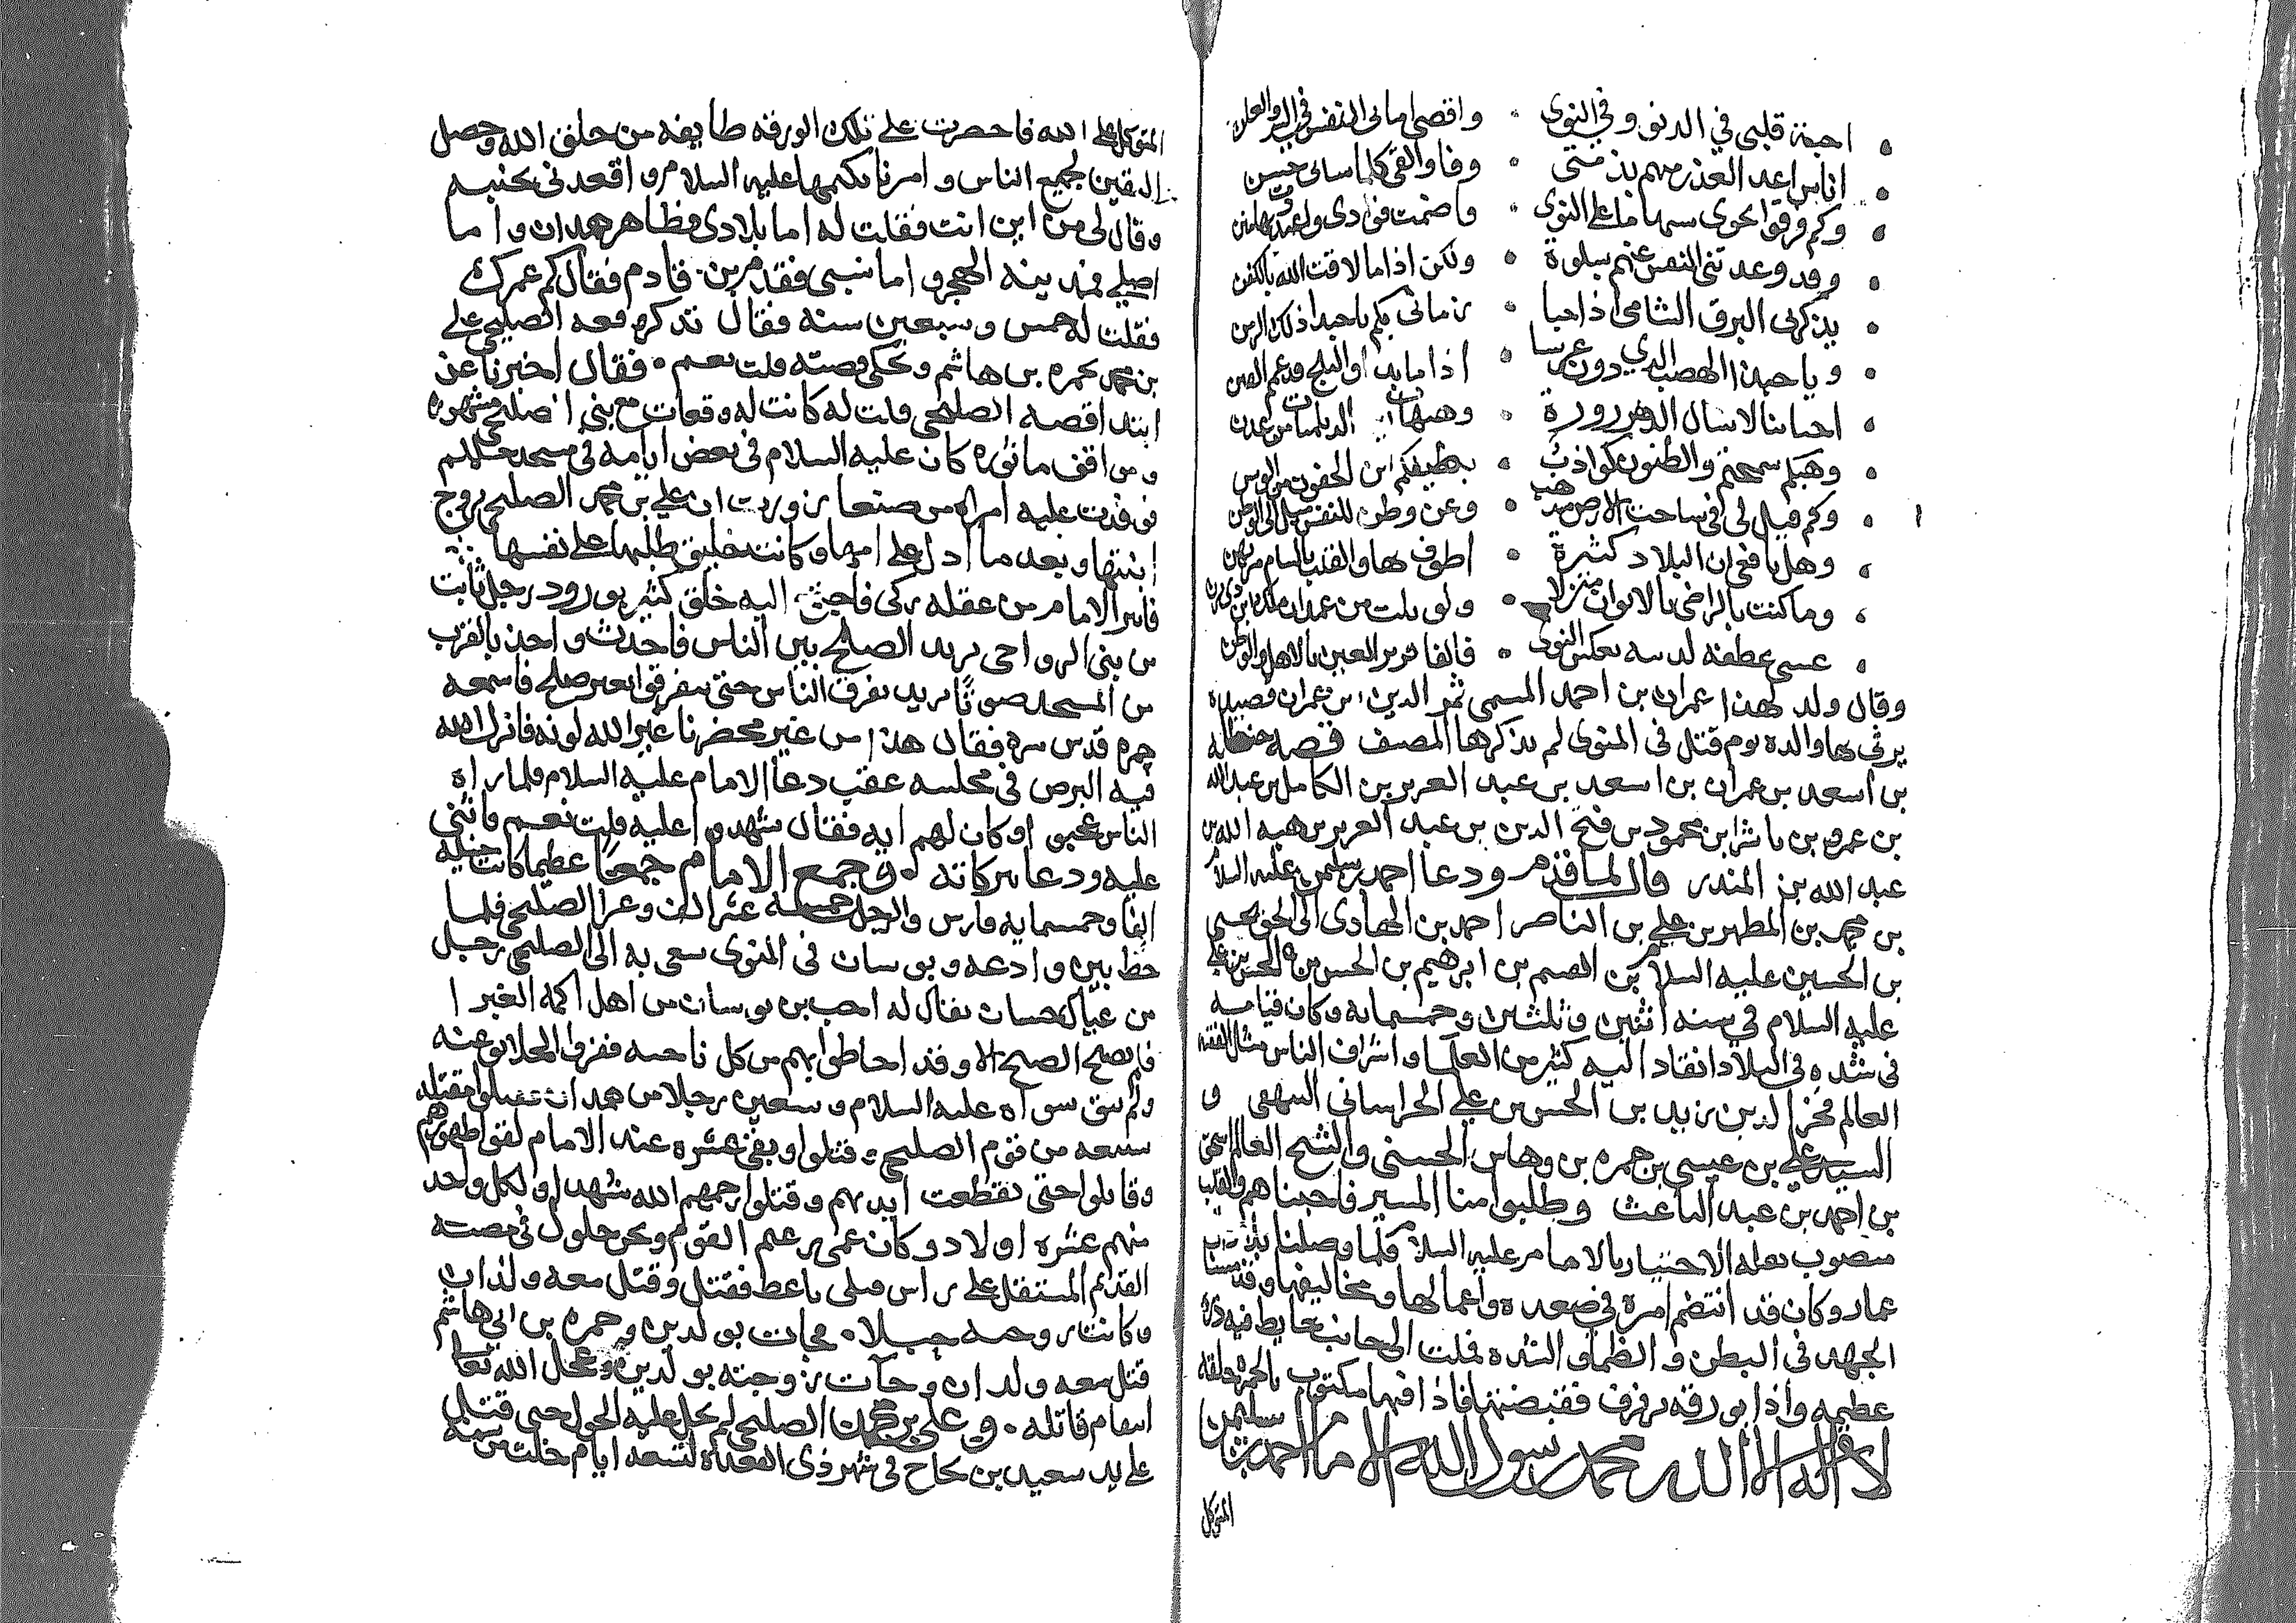 احبة قلبي في الدنو وفي النوى • واقصى اماني النفس في السر والعلن
اناس اعد الغدر منهم بذمتي • وفا والقى كلما ساني حسن
وكم فرقوا نحوي سهاما على النوى • فاصمت فوادي
وقد وعدتني النفس عنهم بسلوة • ولكن اذا ما لاقت الله بالكفن
يذكرني البرق الشامي اذا حبا • زماني بكم يا حبذا ذلك الزمن
ويا حبذا الهضب الذي دون عرسا • اذا ما بدا والثلج قد عمم القنن
احبابنا لا نسال الدهر زورة • وهيهات من عدن
وهبكم سمحتم والظنون كواذب • بطيفكم اين الجفون من الوسن
وكم قيل لي في ساحة الارض مذهب • وعن وطن للنفس ميل الى الوطن
وهل نافعي ان البلاد كثيرة • اطوف بها والقلب بالشام مرتهن
وما كنت بالراضي بالايوان منزلا • ولو نلت من غمدان ملك ابن ذي يزن
عسى عطفة لدسه يعكس النوى • فالفا قرير العين بالاهل والوطن
وقال ولد لهذا عمران بن احمد المسمى ثمر الدين بن عمران قصيدة
يرثي بها والده يوم قتل في المنوى لم يذكرها المصنف قصه
بن اسعد بن عمران بن اسعد بن عبد العزيز بن الكامل بن عبد الله
بن عمرو بن ناشر ابن محمود بن فتح الدين بن عبد العزيز بن هبه الله بن
عبد الله بن المنذر قال لما قدم ودعا احمد بن سليمن عليه السلام
بن محمد بن المطهر بن علي بن الناصر احمد بن الهادي الى الحق يحيى
بن الحسين عليه السلام بن القسم بن ابرهيم بن الحسن بن الحسن بن علي
عليه السلام في سنه اثنين وثلثين وخمسمايه وكان قيامه
في شده في البلاد انقاد اليه كثير من العلما واشراف الناس مثال الفقيه
العالم فخر الدين زيد بن الحسن بن علي الخراساني البيهقي و
السيد علي بن عيسى بن حمزه بن وهاس الحسني والشيخ العالم اسحق
بن احمد بن عبد الباعث وطلبوا منا المسير فاجبناهم والقلب
منصوب بعامل الاختيار بالامام عليه السلام فلما وصلنا
عمار وكان قد انتظم امره في صعده واعمالها ومخاليفها وقد مسنا
الجهد في البطن والظما والشده فملت الى جانب حايط فيه ذره
عظيمه واذا بورقه ترفرف فقبضتها فاذا فيها مكتوب بالحمره خلقه
لا اله الا الله محمد رسول الله الامام احمد بن سليمن
المتوكل
المتوكل على الله فاحضرت على تلك الورقه طايفه من خلق الله وحصل
اليقين لجميع الناس وامرنا بكتمها عليه السلام واقعدني بجنبه
وقال لي من اين انت فقلت له اما بلادي فظاهر همدان واما
اصلي فمدينه الهجر واما نسبي فقدم بن قادم فقال كم عمرك
فقلت له خمس وسبعين سنه فقال تذكر وقعه الصليحي علي
بن محمد بحمزه بن هاشم وتحكي قصته قلت نعم • فقال اخبرنا عن
ابتدا قصه الصليحي قلت له كانت له وقعات مع بني الصليحي مشهوره
ومواقف ماثوره كان عليه السلام في بعض ايامه في مسجد حلملم
فوفدت عليه امراه من صنعا زورت ان علي بن محمد الصليحي تزوج
ابنتها وبعد ما ادخل على امها وكانت خليق طلبها على نفسها
فاسر الامام من عقله زكي فاجتمع اليه خلق كثير بورود رجل ثابت
من بني الرواحي يريد الصلح بين الناس فاحدث واحد بالقرب
من المسجد صوتًا يريد تفرق الناس حتى يتفرقوا بغير صلح فاسمعه
حمزه قدس سره فقال هذا من غير محضرنا غير الله لونه فانزل الله
فيه البرص في مجلسه عقب دعا الامام عليه السلام فلما راه
الناس عجبوا وكان لهم ايه فقال شهدوا عليه قلت نعم فاثنى
عليه ودعا ببركاته • وجمع الامام جمعا عظيما كانت خيله
الفا وخمسمايه فارس والرجل خمسة عشر الف وغزا الصليحي فلما
حط بين وادعه وبوسان في المنوى سعى به الى الصليحي رجل
من عيال حسان يقال له احمد بن بوسان من اهل اكمه الغبرا
فلم يصبح الصبح الا وقد احاطوا بهم من كل ناحيه ففروا الخلايق عنه
ولم يبق سواه عليه السلام وسبعين رجلا من همدان
سبعه من قوم الصليحي وقتلوا وبقي عشره عند الامام لفوا ظهورهم
وقاتلوا حتى تقطعت ايديهم وقتلوا رحمهم الله شهدا ولكل واحد
منهم عشره اولاد وكان عمي زعيم القوم ونحن حلول في قصته
القديم المستقل على راس قبلي ناعط فقتل وقتل معه ولدان
وكانت زوجته حبلا • فجات بولدين وحمزه بن ابي هاشم
قتل معه ولدان وجات زوجته بولدين وعجل الله تعالى
انتقام قاتله • وعلي بن محمد الصليحي لم يحل عليه الحول حتى قتل
على يد سعيد بن نجاح في شهر ذي القعدة لتسعه ايام خلت من سنه